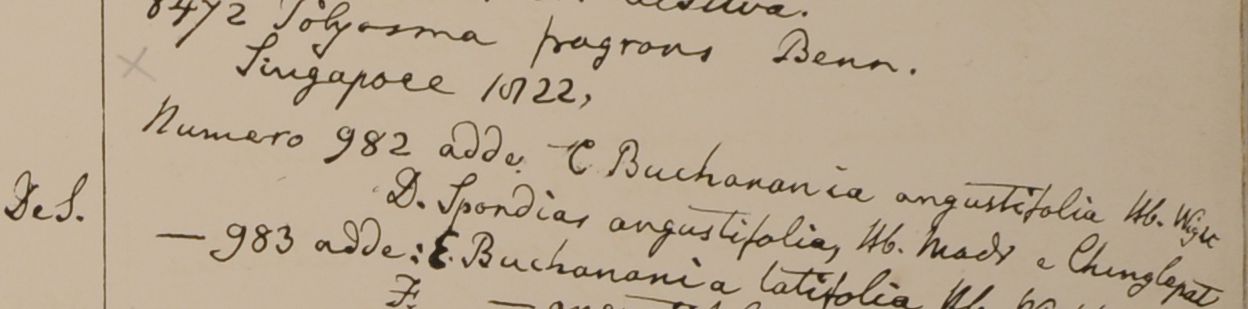 8472 Polyosma fragrans Benn.
Singapore 1822,
Numero 982 adde. C Buchanania angustifolia Hb. Wight
De S.
D. Spondias angustifolia, Hb. Madr e Chinglepat
— 983 adde: E. Buchanania latifolia Hb.
F. —